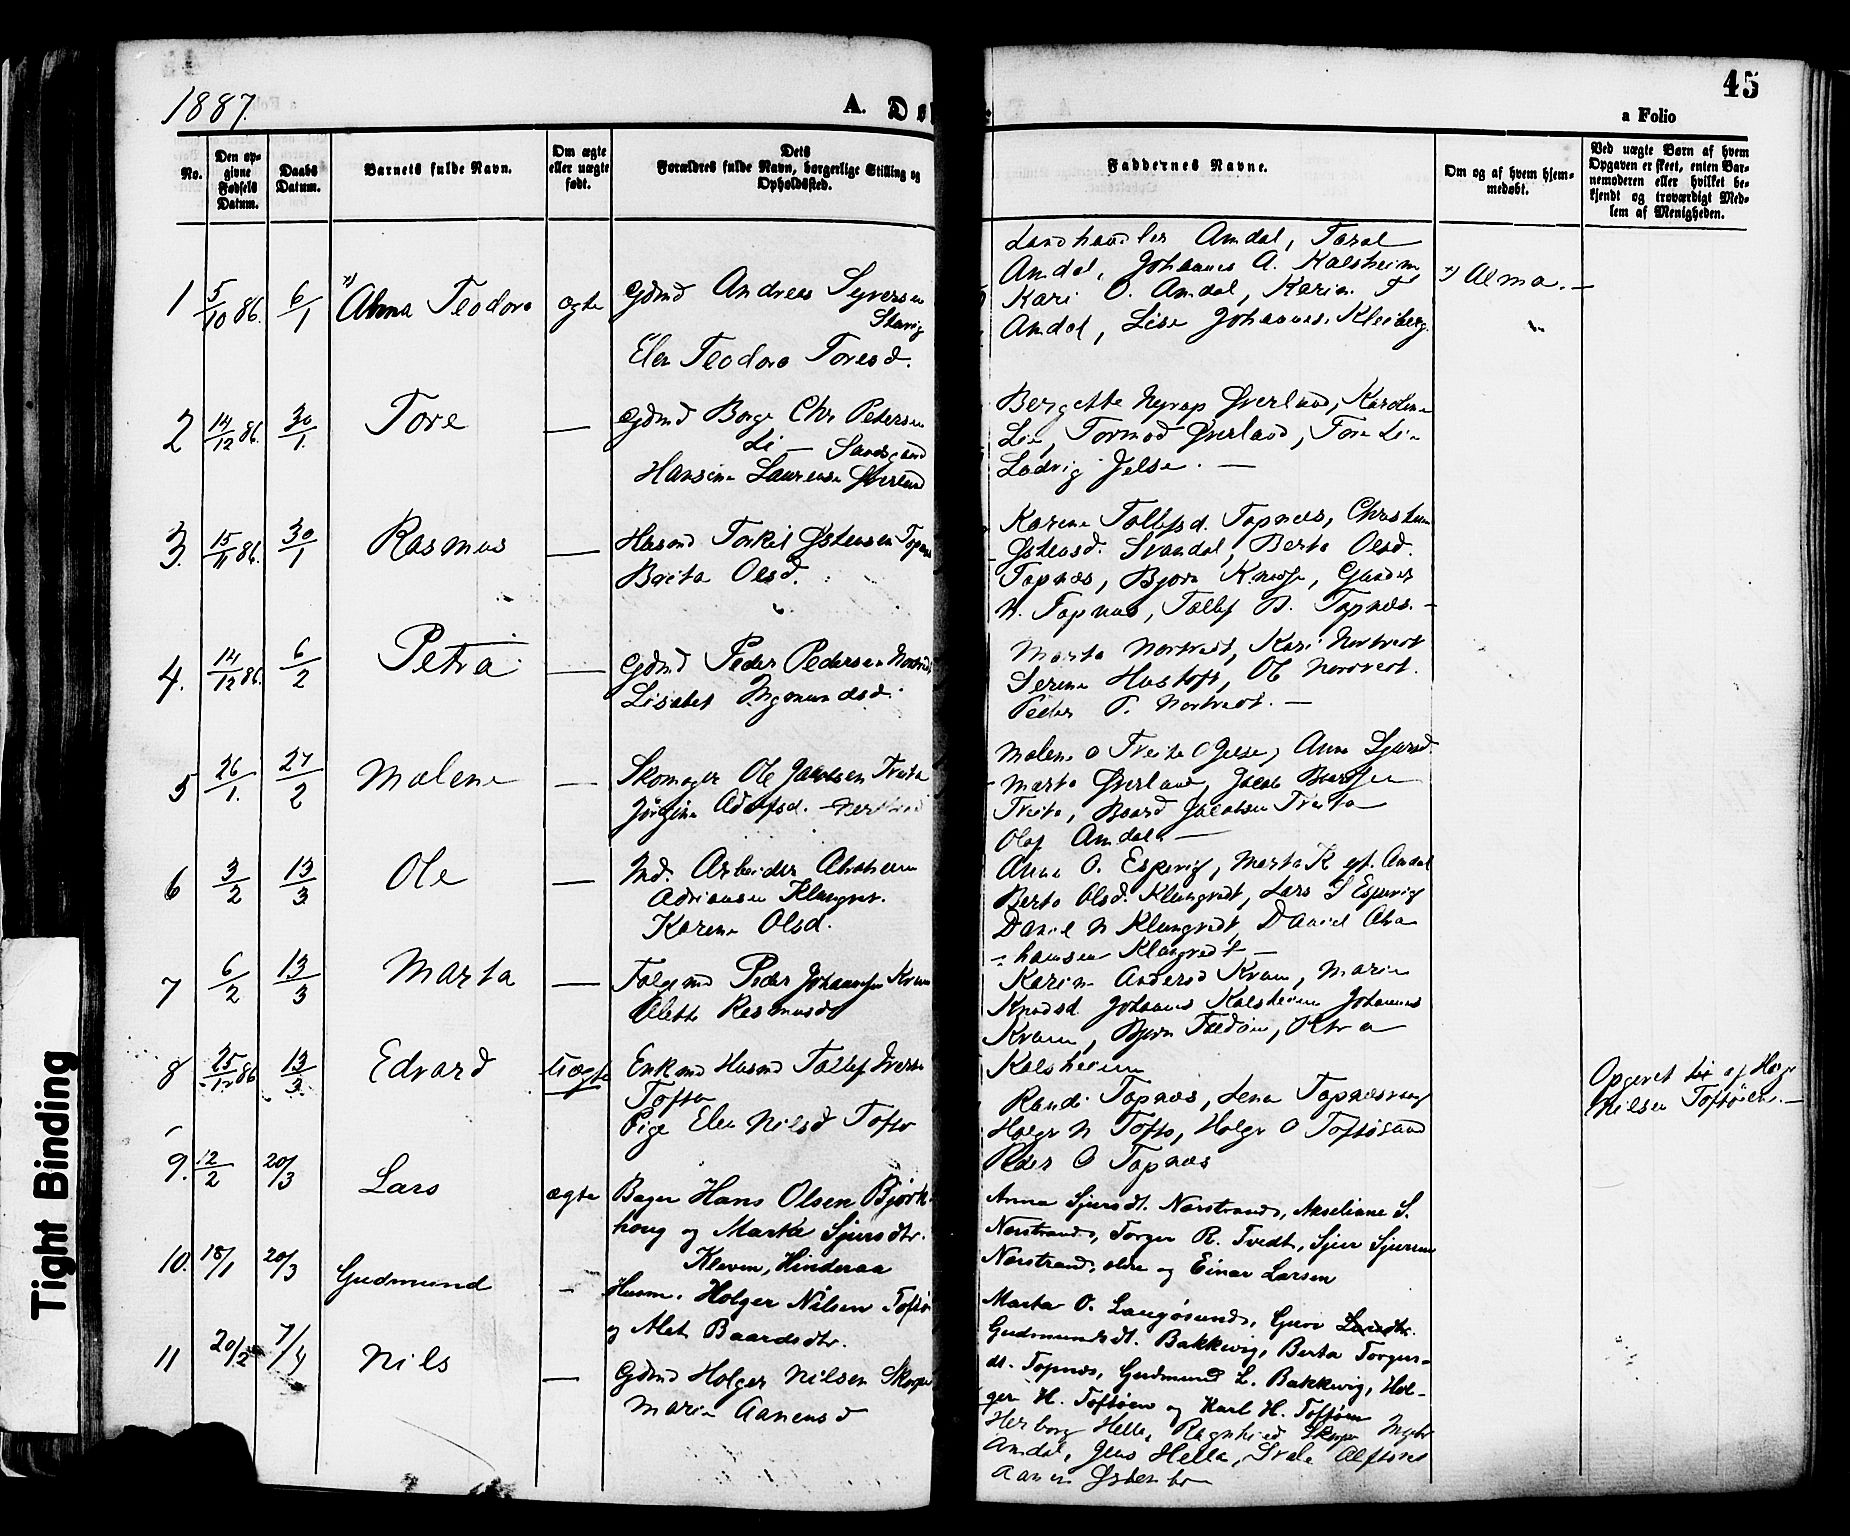 45
1887.
A. Dø
a Folio
No.
Den op-
givne
Fødsels
Datum.
Daabs
Datum.
Barnets fulde Navn.
Om ægte
eller uægte
født.
Dets
Forældres fulde Navn, borgerlige Stilling og
Opholdssted.
Faddernes Navne.
Om og af hvem hjem-
medøbt.
Ved uægte Børn af hvem
Opgaven er skeet, enten Bar-
nemoderen eller hvilket be-
kjendt og troværdigt Med-
lem af Menigheden.
1 5/10 86. 6/1 x) Alma Teodora ægte
Gdmd Andreas Syversen
Elen Teodora Toresd.
Landhandler Amdal, Taral
Amdal, Johannes A. Kalsheim
Kari O. Amdal, Karin T
Amdal, Lise Johannes. Kleiberg
x) Alma. —
2 14/12 86. 30/1. Tore —
Gdmd Borge Chr Petersen
Li — Sandsgaard
Hansine Laurense Øverland
Bergette Nyrop Øverland, Karoline
Lie, Tormod Øverland, Tore Lie
Ludvig Jelse. —
3. 15/11 86. 30/1 Rasmus —
Husmd Torkil Østensen Topnæs
Brita Olsd.
Karene Tollefsd. Topnæs, Christian
Østensd. Svandal, Berta Olsd.
Topnæs, Bjørn
N. Topnæs, Tollef B. Topnæs. —
4. 14/12 86. 6/2 Petra —
Gdmd Peder Pedersen
Lisabet Ingmundsd.
Marta Nortvedt, Kari Nortvedt
Serene Hustoft, Ol Nortvedt.
Peder P. Nortvedt. —
5 26/1. 27/2 Malene —
Skomager Ole Jacobsen Tveita
Jørgine Adolfsd. —
Malene O Tveite Jelse, Anna Sjursd.
Marta Øverland, Jacob
Tveita, Baard Jacobsen Tveita
Olaf Amdal —
6 3/2 13/3 Ole —
Ind. Arbeider Abraham
Adriansen Klungtvt.
Karen Olsd.
Anna O. Espevig, Marta K gf. Amdal
Berta Olsd. Klungtvedt, Lars S Espevig
Daniel N Klungtvedt, Daniel Abra
hamsen Klungtvedt —
7 6/2 13/3 Marta —
Følgmd Peder Johannesen Kvam
Alette Rasmusd
Karin Andersd Kvam, Marie
Knudsd Johannes Kalsheim Johannes
Kvam, Bjørn
Kalsheim
8 25/12 86 13/3. Edvard Uægte
Enkmd Husmd Tollef Iversen
Toftø
Pige Elen Nilsd Toftø
Randi Topnæs, Lena Topnæsvaag
Holgr N Toftø, Holgr O Toftøsund
Peder O Topnæs
Opgivet af Holgr
Nilsen Toftøien. —
9. 12/2 20/3 Lars ægte
Bager Hans Olsen Bjørk-
houg og Marta Sjursdtr.
Kleven, Hinderaa
Anna Sjursdt. Norstrand, Akseliane S.
Norstrand, Torger R. Tvedt, Sjur Sjursen
Norstrand, eldre og Einar Larsen
10. 18/1 20/3 Gudmund —
Husm. Holger Nilsen Toftø
og Alet Baardsdtr.
Marta O. Langøsund, Guro
Gudmundsdt. Bakkevig, Berta Torger-
dt. Topnæs, Gudmund L. Bakkevig, Hol-
ger H. Toftøen og Karl H. Toftøen
11 20/2 7/4 Nils —
Gdmd Holger Nilsen Skorpe
Marie Aanensd
Herborg Hella, Ragnhild Skorpe
Amdal, Jens Hella,
Aanen Østenbø
Tight Binding